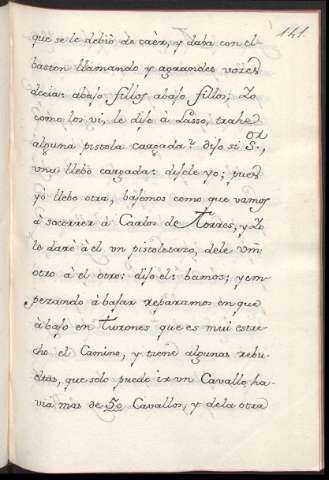 141
que se le debiò de caèr, y daba con el
baston llamando y agrandes vozes
decia: abajo fillos abajo fillos; Yo
como los vi, le dije à Lasso, trahe
alguna pistola cargada? dijo si Sor,
una llebo cargada: dijele yo; pues
yò llebo otra, bajemos como que vamos
à socorrer à Carlos de Torres, y Yo
le darè à èl vn pistoletazo, dele Vm
otro à el otro: dijo el: bamos; y em
pezando à bajar reparamos en que
àbajo en Turones que es mui estre
cho el Camino, y tiene algunas rebu
eltas, que solo puede ir vn Cavallo, ha
via mas de 50 Cavallos, y dela otra